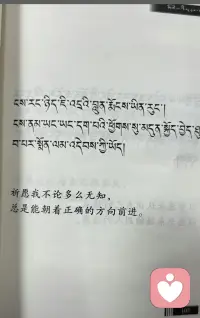 ངས་རང་ཉིད་ཇི་འདྲའི་བླུན་རྨོངས་ཡིན་རུང་།
ངས་ནམ་ཡང་ཡང་དག་པའི་ཕྱོགས་སུ་མདུན་སྐྱོད་བྱེད་ཐུ
བ་པར་སྨོན་ལམ་འདེབས་ཀྱི་ཡོད།
祈愿我不论多么无知，
总是能朝着正确的方向前进。